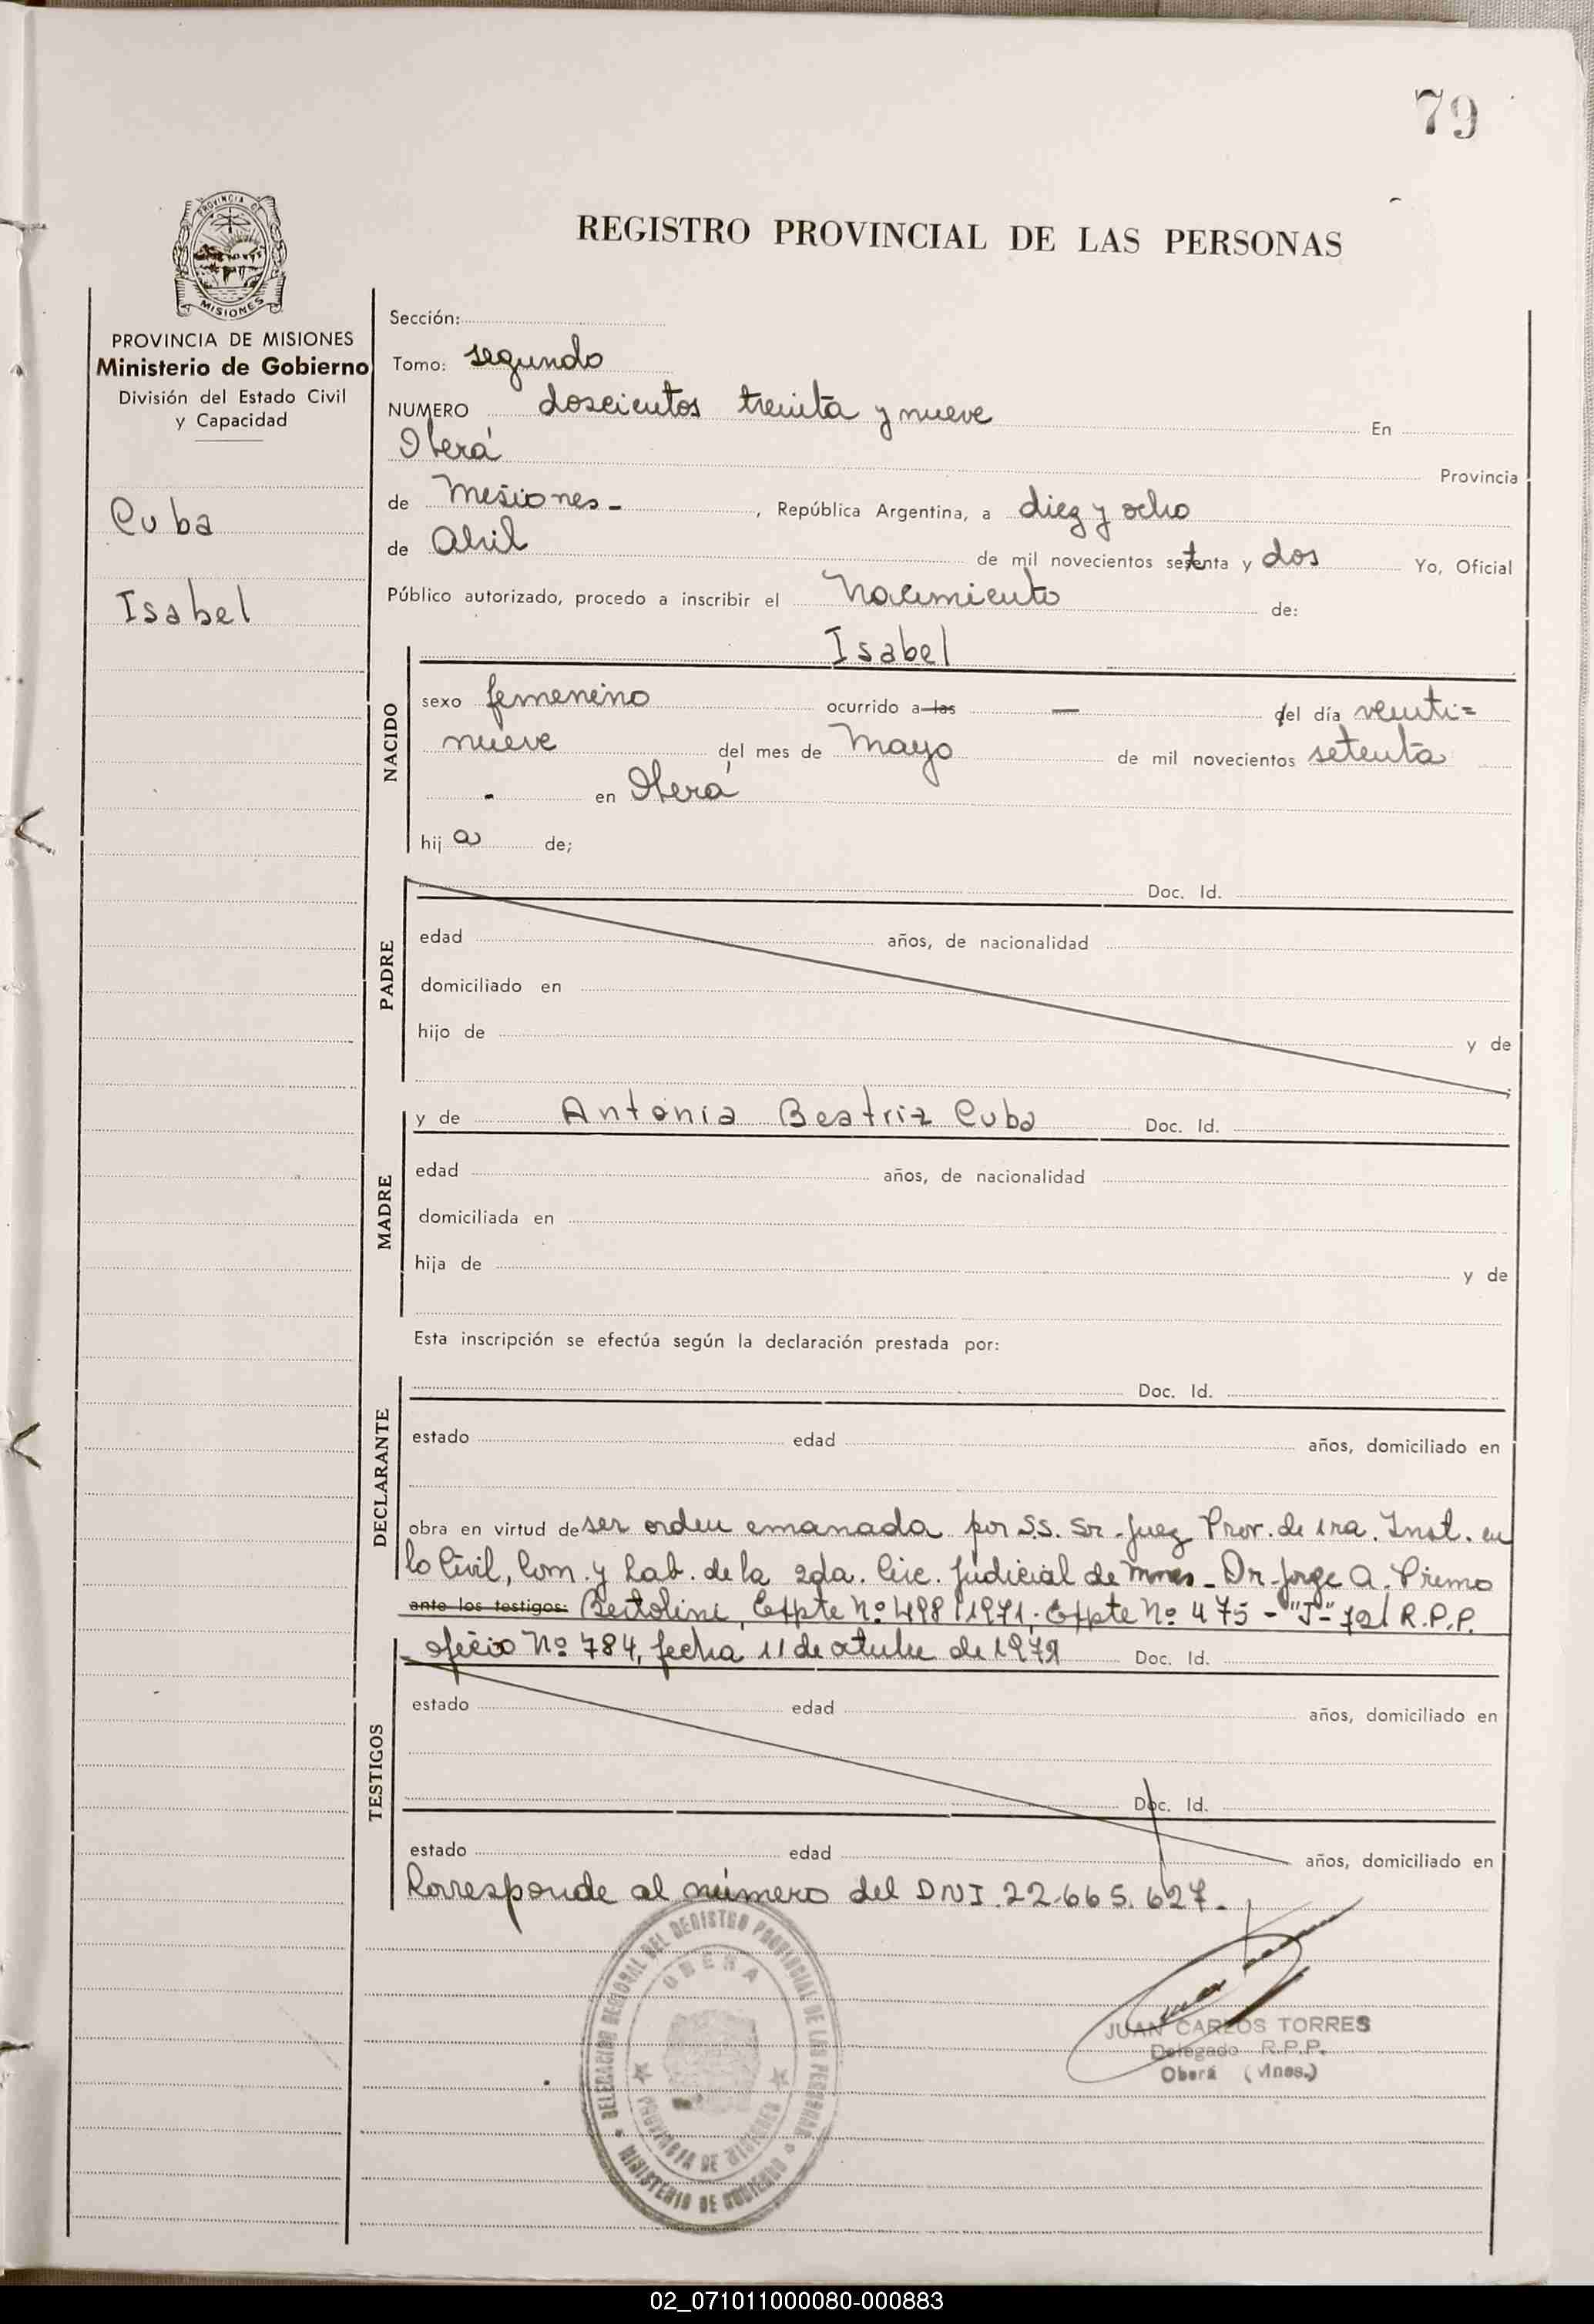 79
PROVINCIA DE
MISIONES
REGISTRO PROVINCIAL DE LAS PERSONAS
PROVINCIA DE MISIONES
Ministerio de Gobierno
División del Estado Civil
y Capacidad
Cuba
Isabel
Sección:
Tomo: segundo
NUMERO doscientos treinta y nueve En
Oberá Provincia
de Misiones - , República Argentina, a diez y ocho
de Abril de mil novecientos setenta y dos Yo, Oficial
Público autorizado, procedo a inscribir el Nacimiento de:
Isabel
NACIDO
sexo femenino ocurrido a las — del día veinti=
nueve del mes de Mayo de mil novecientos setenta
- en Oberá
hij a de;
PADRE
Doc. Id.
edad años, de nacionalidad
domiciliado en
hijo de y de
MADRE
y de Antonia Beatriz Cuba Doc. Id.
edad años, de nacionalidad
domiciliada en
hija de y de
Esta inscripción se efectúa según la declaración prestada por:
DECLARANTE
Doc. Id.
estado edad años, domiciliado en
obra en virtud de ser orden emanada por S.S. Sr. Juez Prov. de 1ra. Inst. en
lo Civil, Com. y Lab. de la 2da. Circ. Judicial de Mnes - Dr. Jorge A. Primo
ante los testigos: Bertolini, Expte Nº 498/1971; Expte Nº 475 - "J" - 72/ R.P.P.
oficio Nº 784, fecha 11 de octubre de 1971 Doc. Id.
TESTIGOS
estado edad años, domiciliado en
Doc. Id.
estado edad años, domiciliado en
Corresponde al número del DNI. 22.665.627.-
DELEGACION REGIONAL DEL REGISTRO PROVINCIAL DE LAS PERSONAS
OBERA
PROVINCIA DE MISIONES
MINISTERIO DE GOBIERNO
JUAN CARLOS TORRES
Delegado R.P.P.
Oberá (Mnes.)
02_071011000080-000883